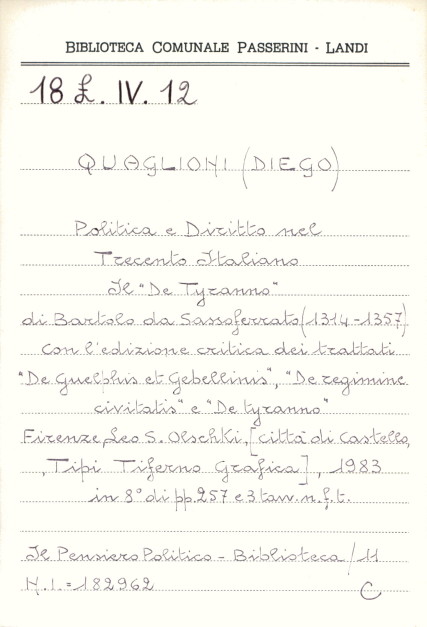 BIBLIOTECA COMUNALE PASSERINI - LANDI
18 L. IV. 12
QUAGLIONI (DIEGO)
Politica e Diritto nel
Trecento Italiano
Il "De Tyranno"
di Bartolo da Sassoferrato (1314-1357)
con l'edizione critica dei trattati
"De Guelphis et Gebellinis", "De regimine
civitatis" e "De tyranno"
Firenze, Leo S. Olschki, [città di Castello,
, Tipi Tiferno Grafica], 1983
in 8° di pp. 257 e 3 tavv. n. f. t.
Il Pensiero Politico - Biblioteca / 11
N.I. = 182962
C